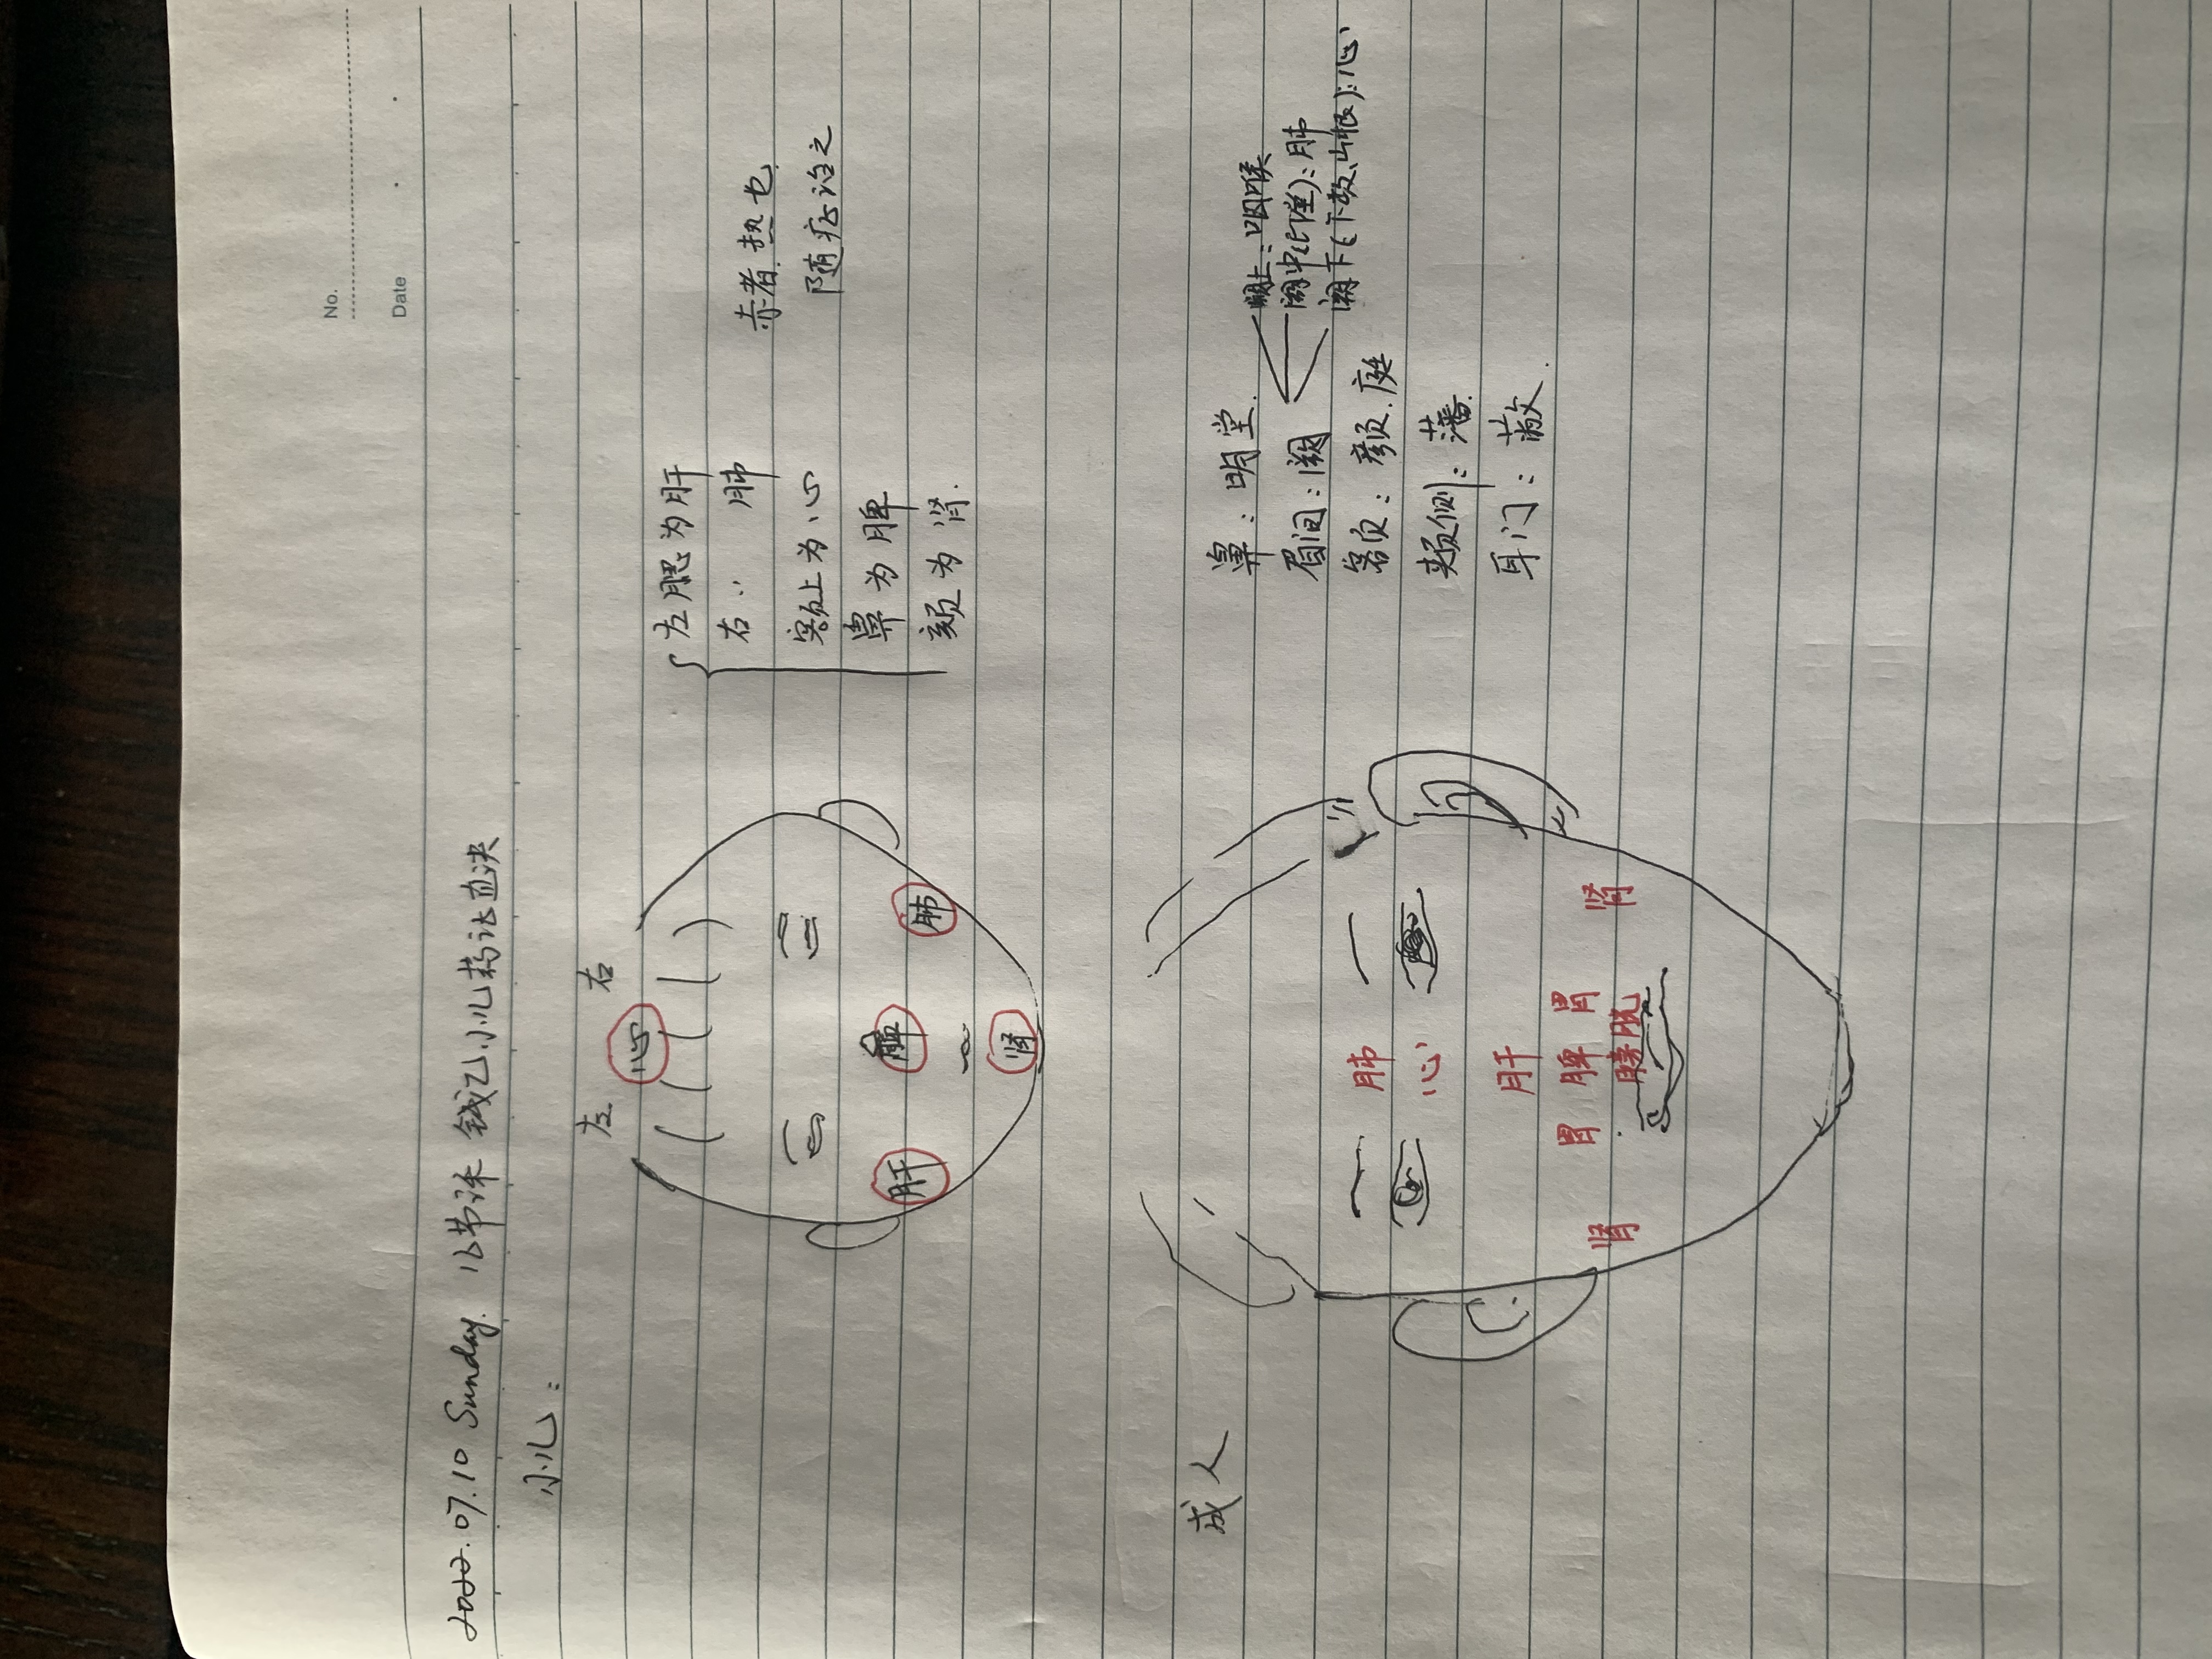 No.
Date
2022.07.10 Sunday. 16节课 钱乙小儿药证直诀
小儿:
左 右
心
肝 脾 肺
肾
左腮为肝
右〃 肺
额上为心
鼻为脾
颏为肾.
赤者热也
随症治之
成人
肺
心
肝
胃 脾 胃
肾 膀胱 肾
鼻:明堂.
眉间:阙
额:颜.庭
颊侧:藩.
耳门:蔽.
阙上:咽喉
阙中(印堂):肺
阙下(下极、山根):心